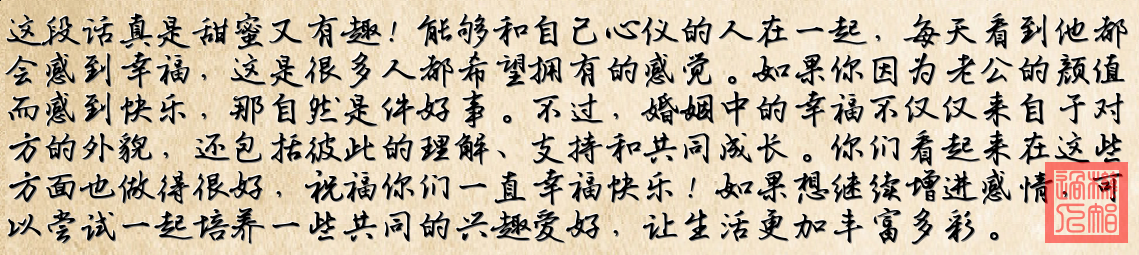 这段话真是甜蜜又有趣！能够和自己心仪的人在一起，每天看到他都
会感到幸福，这是很多人都希望拥有的感觉。如果你因为老公的颜值
而感到快乐，那自然是件好事。不过，婚姻中的幸福不仅仅来自于对
方的外貌，还包括彼此的理解、支持和共同成长。你们看起来在这些
方面也做得很好，祝福你们一直幸福快乐！如果想继续增进感情，可
以尝试一起培养一些共同的兴趣爱好，让生活更加丰富多彩。